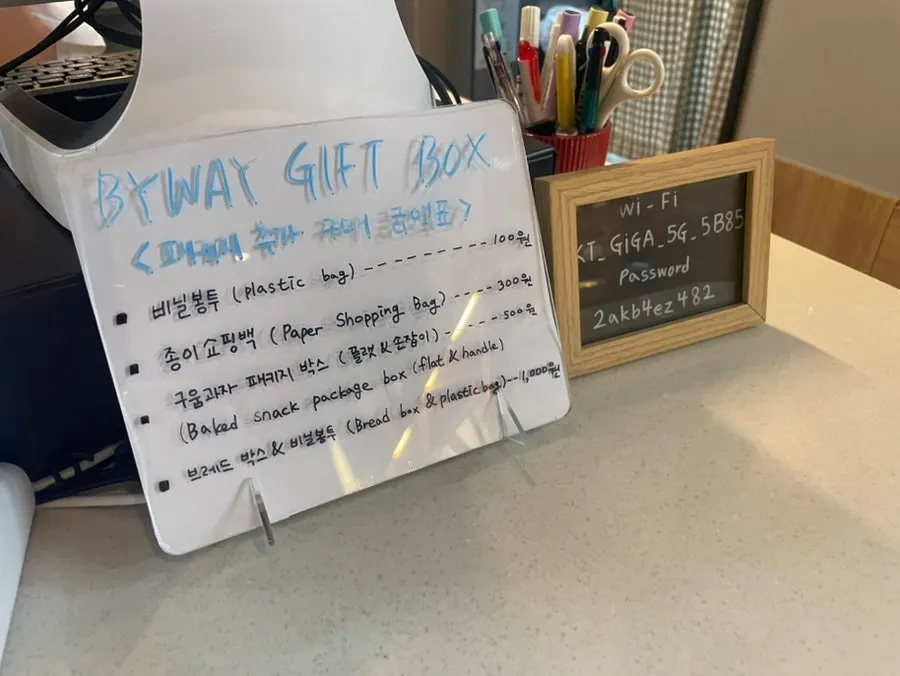 BYWAY GIFT BOX
<패키지 추가 구매 금액표>
■ 비닐봉투 (plastic bag) --------- 100원
■ 종이쇼핑백 (Paper Shopping Bag) ---- 300원
■ 구움과자 패키지 박스 (플랫&손잡이) ----- 500원
(Baked snack package box (flat & handle)
■ 브레드 박스 & 비닐봉투 (Bread box & plastic bag)--1,000원
Wi-Fi
KT_GiGA_5G_5B85
Password
2akb4ez482